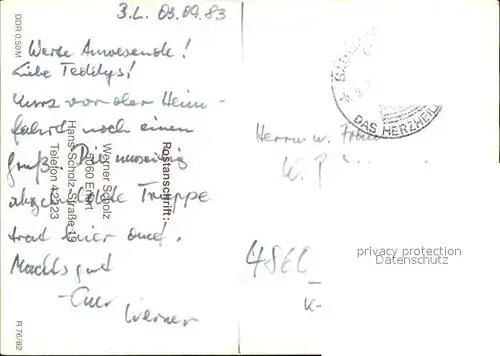 B.L. 03.09.83
DDR 0,50 M
Werte Anwesende!
Liebe Teddys!
Kurz vor der Heim-
fahrt noch einen
Gruß. Die
abgebildete Truppe
trat hier auf.
Machts gut
- Euer
Werner
Postanschrift:
Werner Scholz
5060 Erfurt
Hans-Scholz-Straße 19
Telefon 42223
R 76/82
DAS HERZHEIL
Herrn u. Frau
W. P
K-
privacy protection
Datenschutz